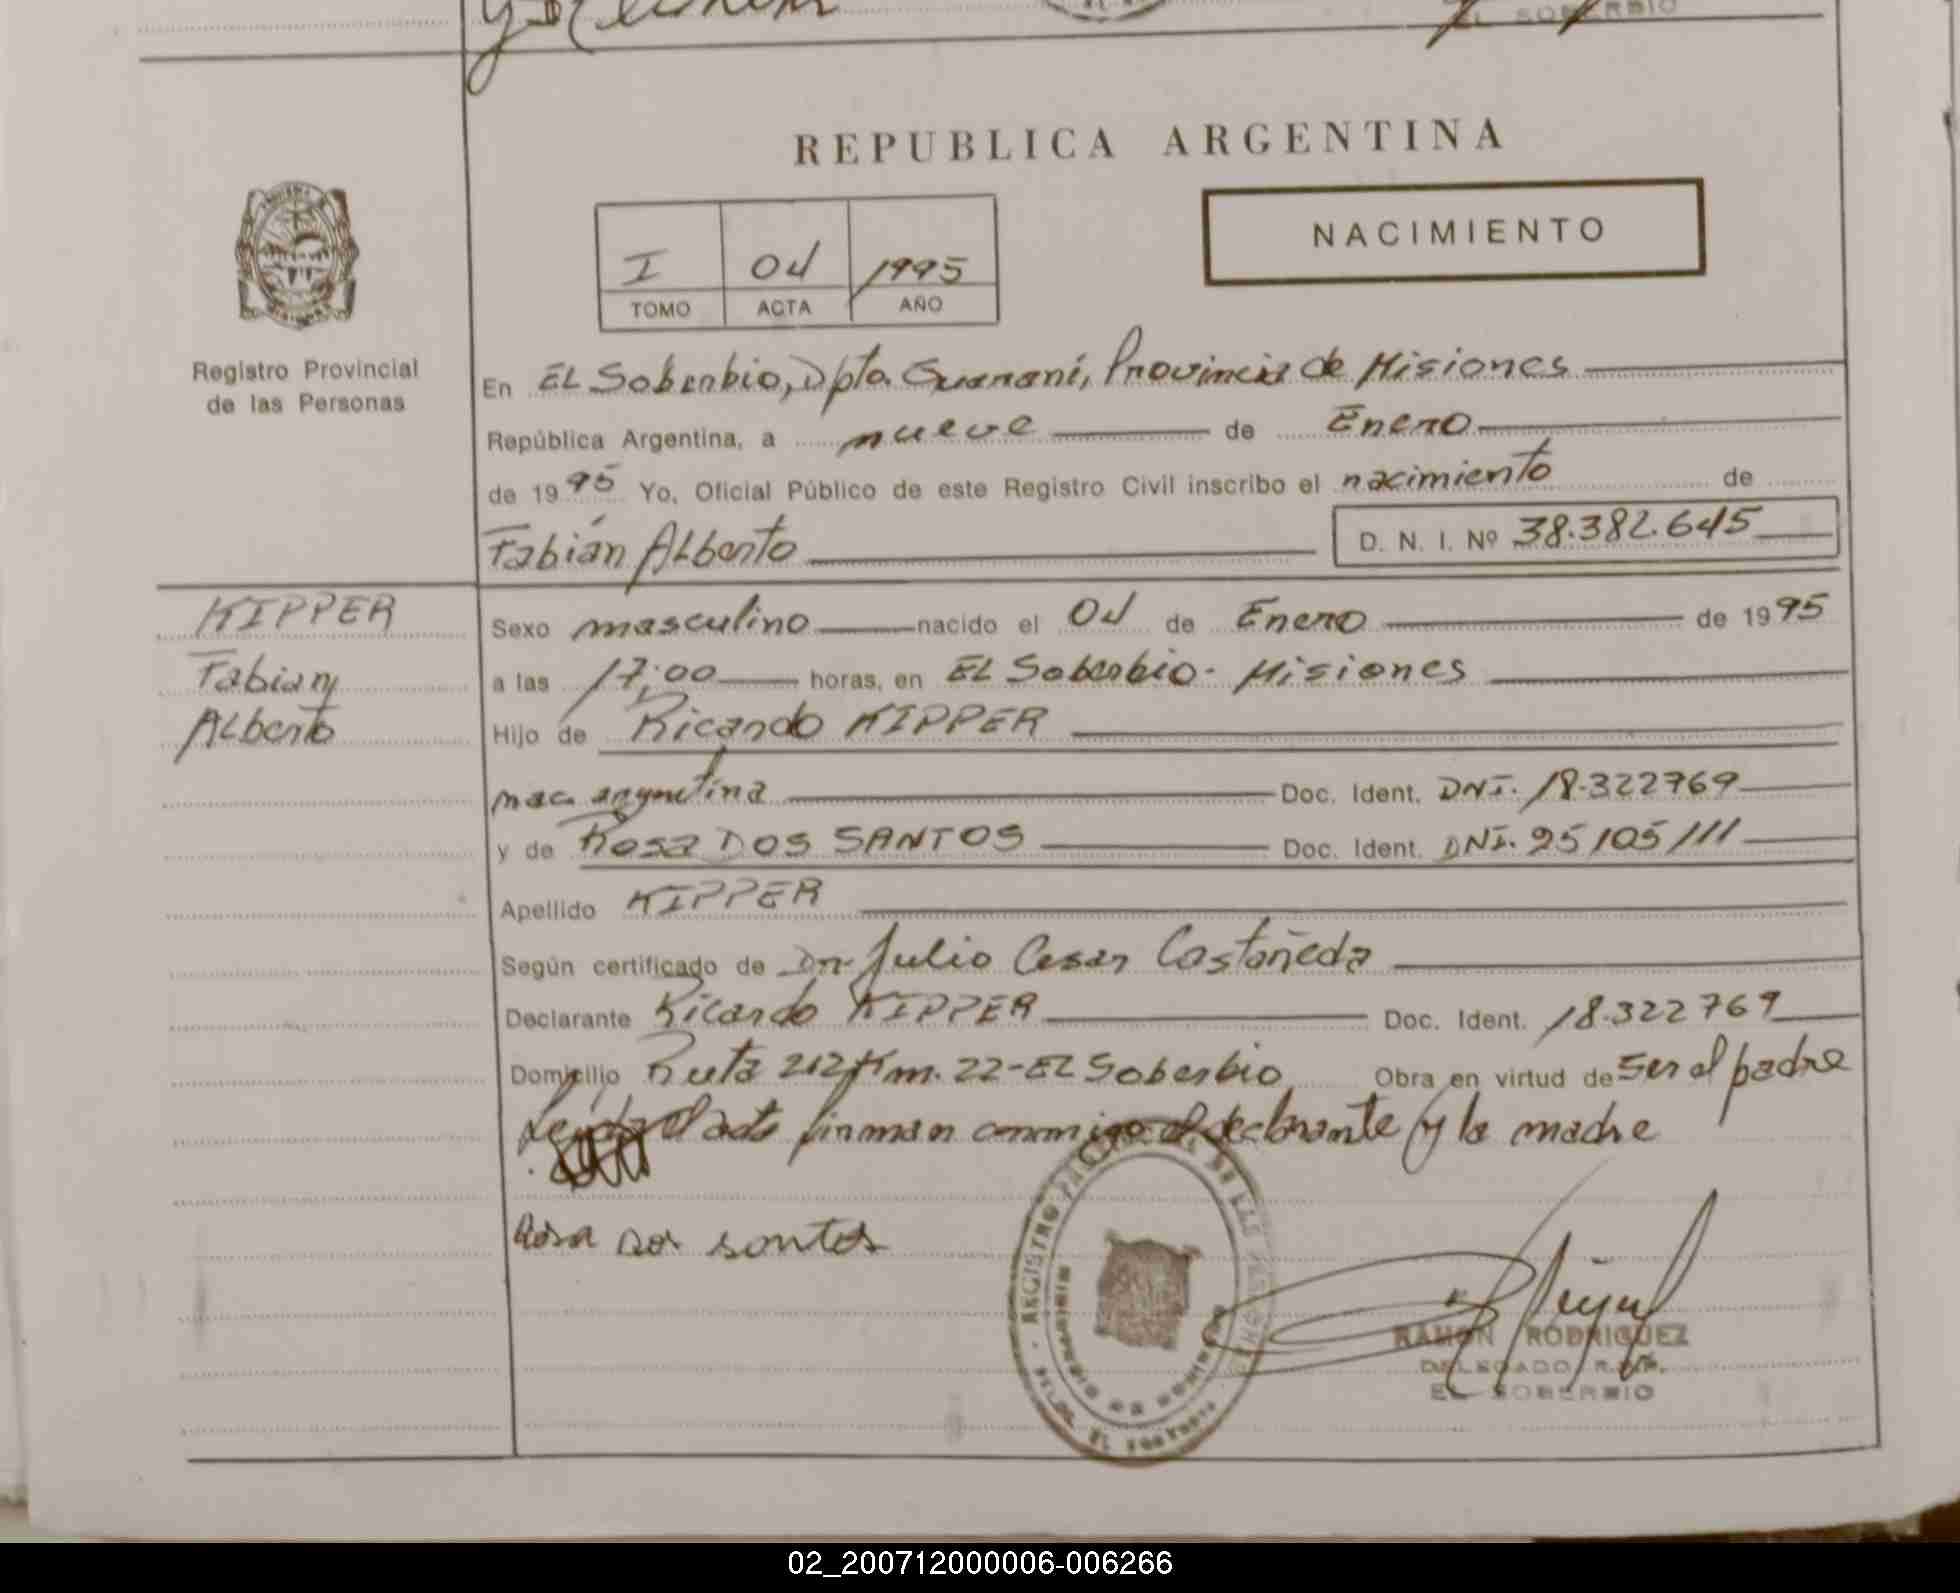 EL SOBERBIO
REPUBLICA ARGENTINA
NACIMIENTO
I 04 1995
TOMO ACTA AÑO
Registro Provincial
de las Personas
En EL Soberbio, Dpto. Guaraní, Provincia de Misiones
República Argentina, a nueve de Enero
de 1995 Yo, Oficial Público de este Registro Civil inscribo el nacimiento de
Fabián ALberto D. N. I. Nº 38.382.645
KIPPER
Fabian
ALberto
Sexo masculino nacido el 04 de Enero de 1995
a las 17:00 horas, en EL Soberbio - Misiones
Hijo de Ricardo KIPPER
nac. argentina Doc. Ident. DNI. 18.322769
y de Rosa DOS SANTOS Doc. Ident. DNI. 95105111
Apellido KIPPER
Según certificado de Dr. Julio Cesar Castañeda
Declarante Ricardo KIPPER Doc. Ident. 18.322769
Domicilio Ruta 212 Km. 22-EL Soberbio Obra en virtud de ser el padre
Leída el acta firman conmigo el declarante y la madre
Rosa dos santos
REGISTRO PROVINCIAL DE LAS PERSONAS
RAMON RODRIGUEZ
DELEGADO R.P.P.
EL SOBERBIO
02_200712000006-006266